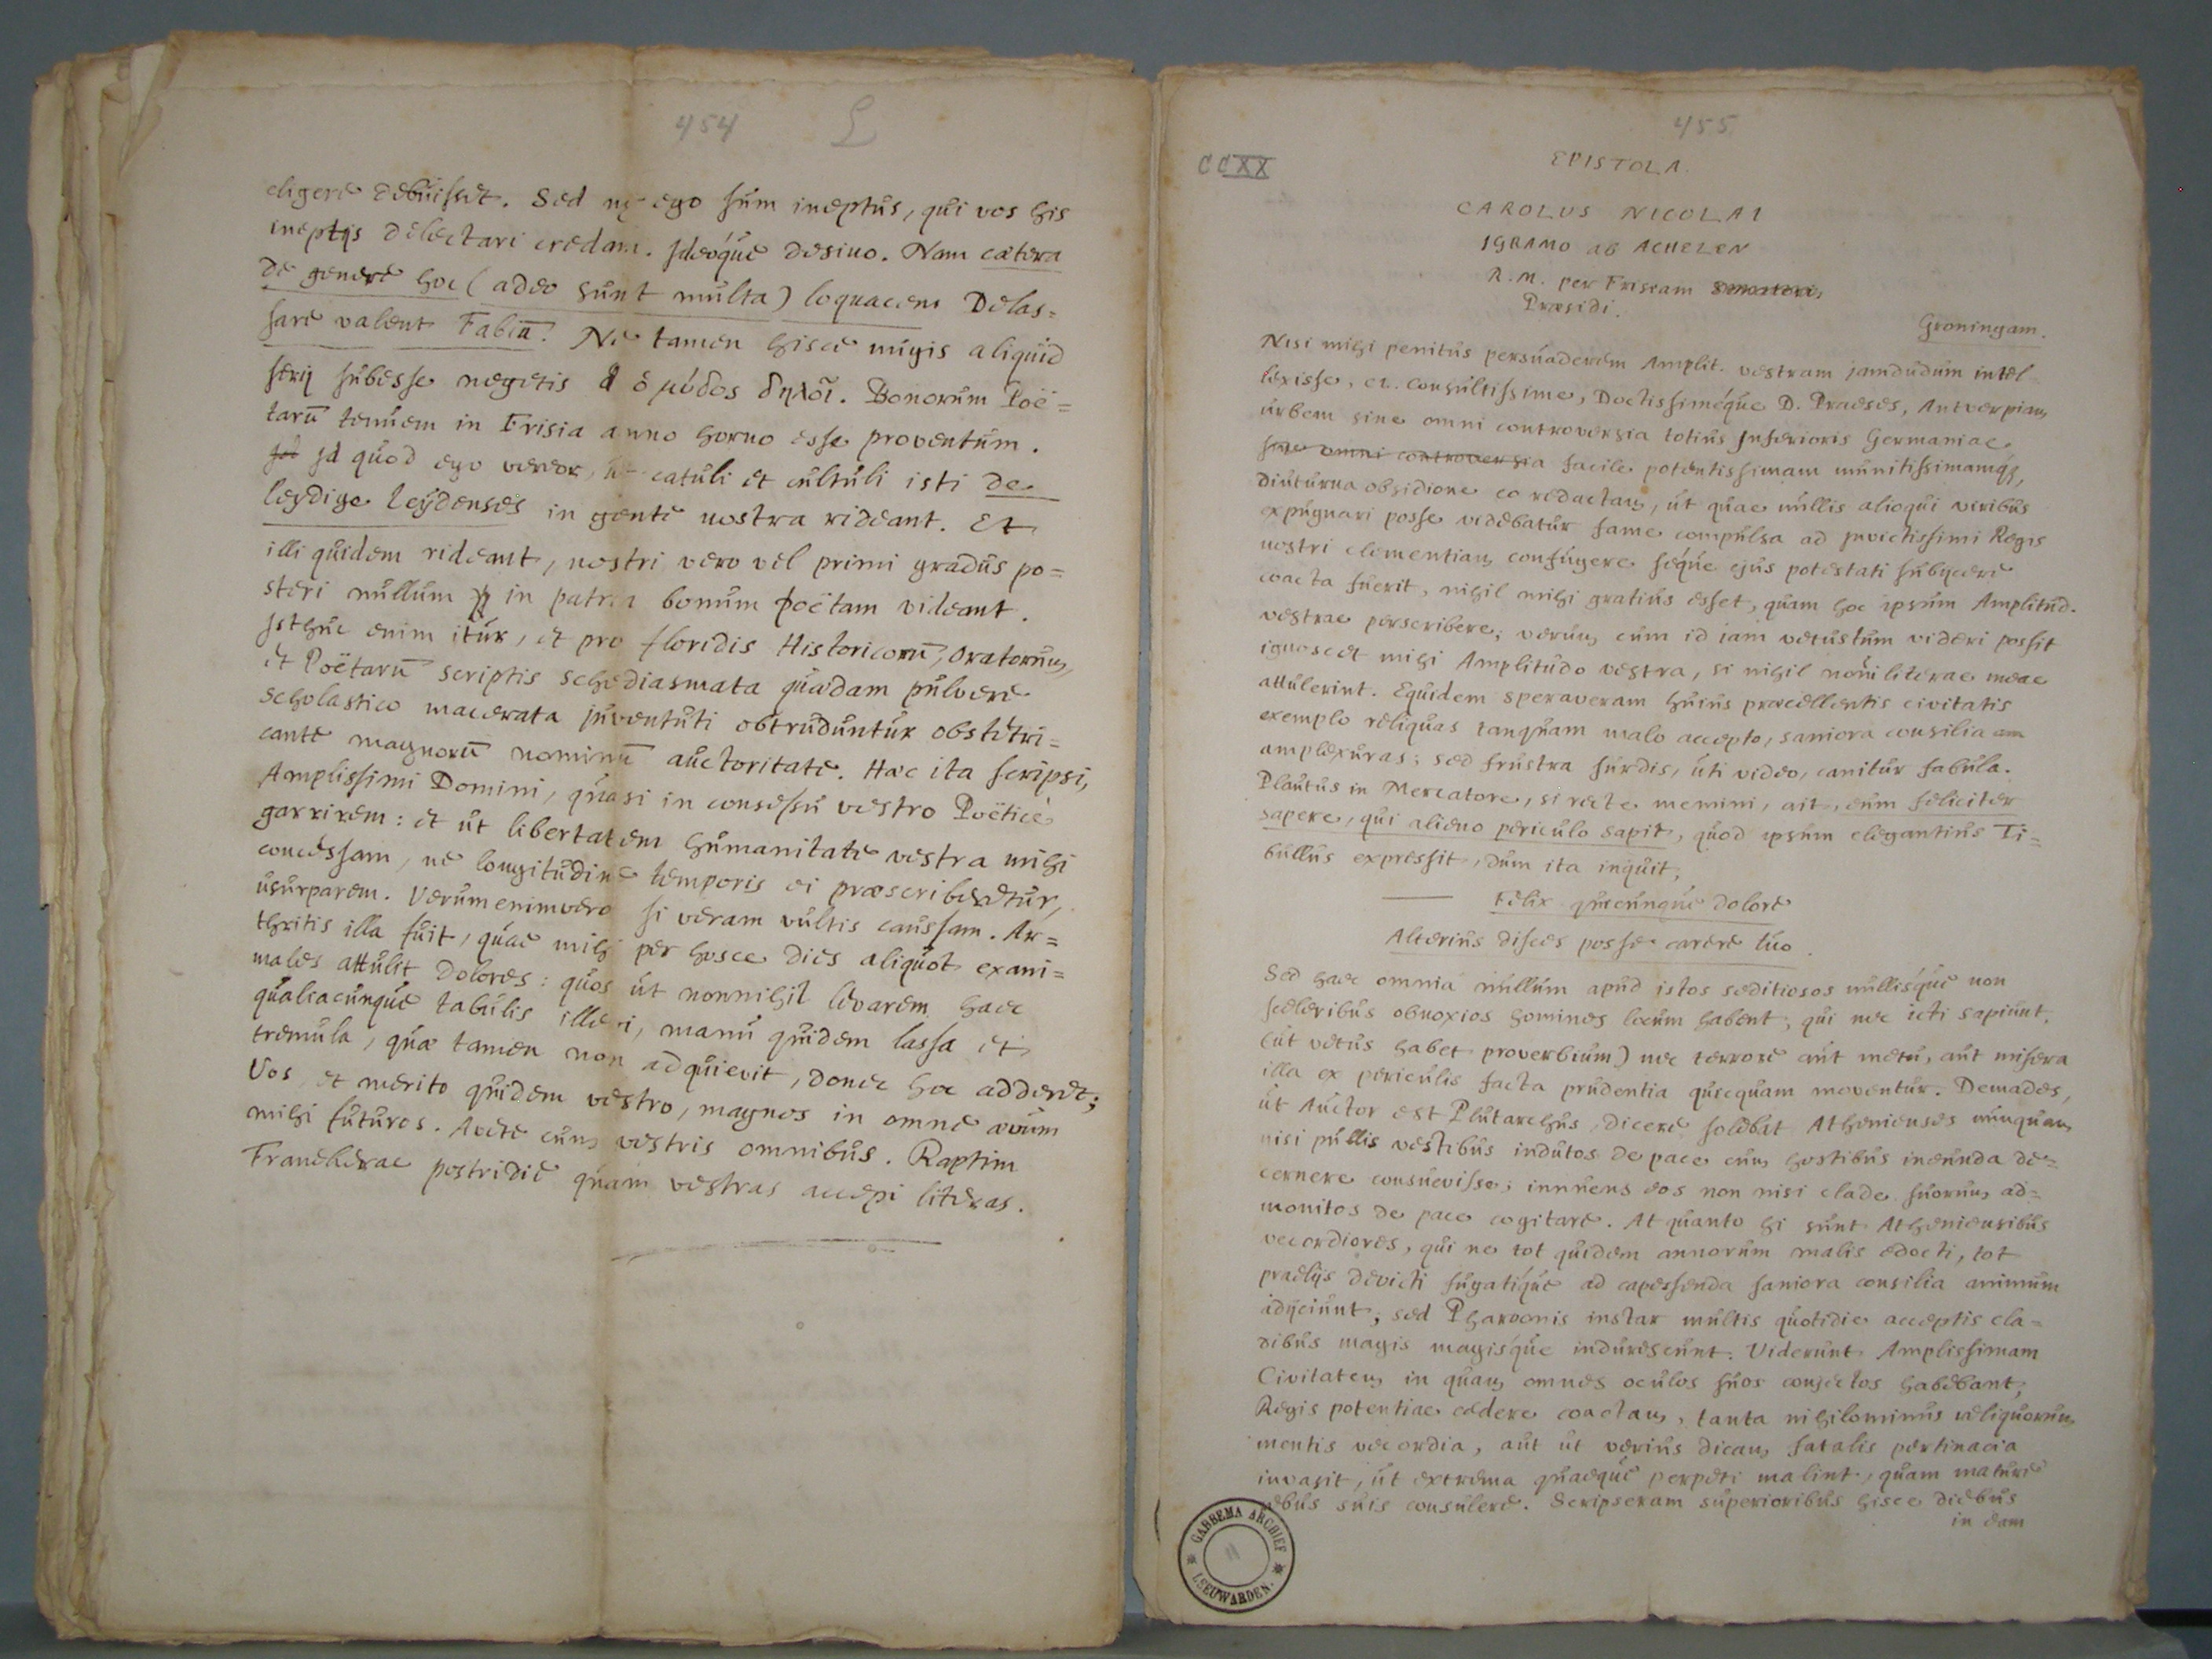 454
eligere debuisset. Sed nę ego sum ineptus, qui vos his
ineptijs delectari credam. Ideóque desino. Nam cætera
de genere hoc (adeo sunt multa) loquacem Delas=
sare valent Fabiū. Ne tamen hisce nugis aliquid
serij subesse negetis ὁ μύθος δηλοῖ. Bonorum Poë=
tarū tenuem in Frisia anno horno esse proventum.
Id quod ego vereor, ut catuli et cultuli isti de
leydige Leÿdenses in gente nostra rideant. Et
illi quidem rideant, nostri vero vel primi gradus po=
steri nullum in patria bonum poëtam videant.
Isthuc enim itur, et pro floridis Historicorū, Oratorum,
et Poëtarū scriptis schediasmata quædam pulvere
scholastico macerata juventuti obtruduntur obstetri=
cante magnorū nominū auctoritate. Hæc ita scripsi,
Amplissimi Domini, quasi in consessu vestro Poëticè
garrirem: et ut libertatem humanitate vestra mihi
concessam, ne longitudine temporis ei præscriberetur,
usurparem. Verum enimvero si veram vultis caussam. Ar=
thritis illa fuit, quae mihi per hosce dies aliquot exani=
males attulit Dolores: quos ut nonnihil levarem haec
qualiacunque tabulis illevi, manu quidem lassa et
tremula, quæ tamen non adquievit, donec hoc adderet;
Vos, et merito quidem vestro, magnos in omne ævum
mihi futuros. Avete cum vestris omnibus. Raptim
Franekerae postridie quam vestras accepi literas.
455
CCXX
EPISTOLA.
CAROLUS NICOLAI
IGRAMO ab ACHELEN
R. M. per Frisiam Senatori,
Præsidi.
Groningam.
Nisi mihi penitus persuaderem Amplit. vestram jamdudum intel
lexisse, Cl. Consultissime, Doctissiméque D. Praeses, Antverpiam
urbem sine omni controversia totius Inferioris Germaniae
sine omni controversia facile potentissimam munitissimamq;
diuturna obsidione eo redactam, ut quae nullis alioqui viribus
expugnari posse videbatur fame compulsa ad Invictissimi Regis
nostri clementiam confugere séque ejus potestati subijcere
coacta fuerit, nihil mihi gratius esset, quam hoc ipsum Amplitud.
vestrae perscribere; verum cum id iam vetustum videri possit
ignoscet mihi Amplitudo vestra, si nihil novi literae meae
attulerint. Equidem speraveram huius præcellentis civitatis
exemplo reliquas tanquam malo accepto, saniora consilia am
amplexuras; sed frustra surdis, uti video, canitur fabula.
Plautus in Mercatore, si recte memini, ait, eum feliciter
sapere, qui alieno periculo sapit, quod ipsum elegantius Ti=
bullus expressit, dum ita inquit,
Felix quicunque dolore
Alterius disces posse carere tuo.
Sed haec omnia nullum apud istos seditiosos nullisque non
sceleribus obnoxios homines locum habent, qui nec icti sapiunt,
(ut vetus habet proverbium) nec terrore aut metu, aut misera
illa ex periculis facta prudentia quicquam moventur. Demades,
ut Auctor est Plutarchus, dicere solebat Athenienses nunquam
nisi pullis vestibus indutos de pace cum hostibus ineunda de=
cernere consuevisse; innuens eos non nisi clade suorum ad=
monitos de pace cogitare. At quanto hi sunt Atheniensibus
vecordiores, qui ne tot quidem annorum malis edocti, tot
praelijs devicti fugatique ad capessenda saniora consilia animum
adijciunt; sed Pharaonis instar multis quotidie acceptis cla=
dibus magis magisque indurescunt. Viderunt Amplissimam
Civitatem in quam omnes oculos suos conjectos habebant,
Regis potentiae cedere coactam, tanta nihilominus reliquorum
mentis vecordia, aut ut verius dicam fatalis pertinacia
invasit, ut extrema quaeque perpeti malint, quam mature
rebus suis consulere. Scripseram superioribus hisce diebus
in eam
GABBEMA ARCHIEF
LEEUWARDEN.